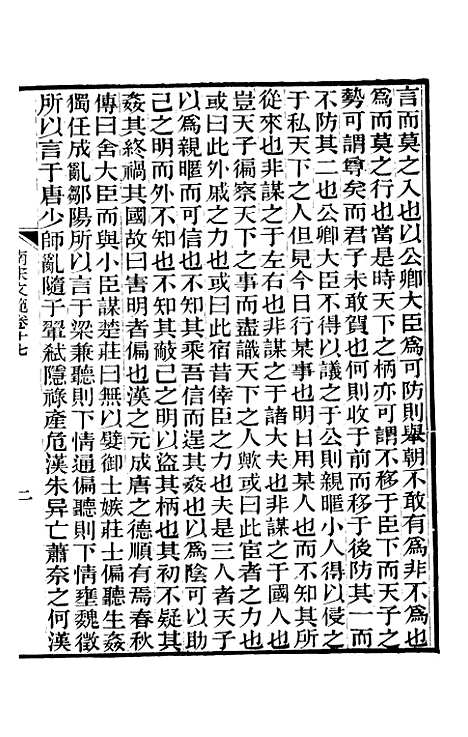 言而莫之入也以公卿大臣爲可防則舉朝不敢有爲非不爲也
爲而莫之行也當是時天下之柄亦可謂不移于臣下而天子之
勢可謂尊矣而君子未敢賀也何則收于前而移子後防其一而
不防其二也公卿大臣不得以議之于公則親暱小人得以侵之
于私天下之人但見今日行某事也明日用某人也而不知其所
從來也非謀之于左右也非謀之于諸大夫也非謀之于國人也
豈天子徧察天下之事而盡識天下之人歟或曰此宦者之力也
或曰此外戚之力也或曰此宿昔倖臣之力也夫是三人者天子
以爲親暱而可信也不知其乘吾信而逞其姦也以爲陰可以助
己之明而外不知也不知其蔽己之明以盜其柄也其初不疑其
姦其終禍其國故曰害明者偏也漢之元成唐之德順有焉春秋
傳曰舍大臣而與小臣謀楚莊曰無以嬖御士嫉莊士偏聽生姦
獨任成亂鄒陽所以言于梁兼聽則下情通偏聽則下情壅魏徵
所以言于唐少師亂隨于翬弑隱祿產危漢朱异亡蕭奈之何漢
南宋文範卷十七
二